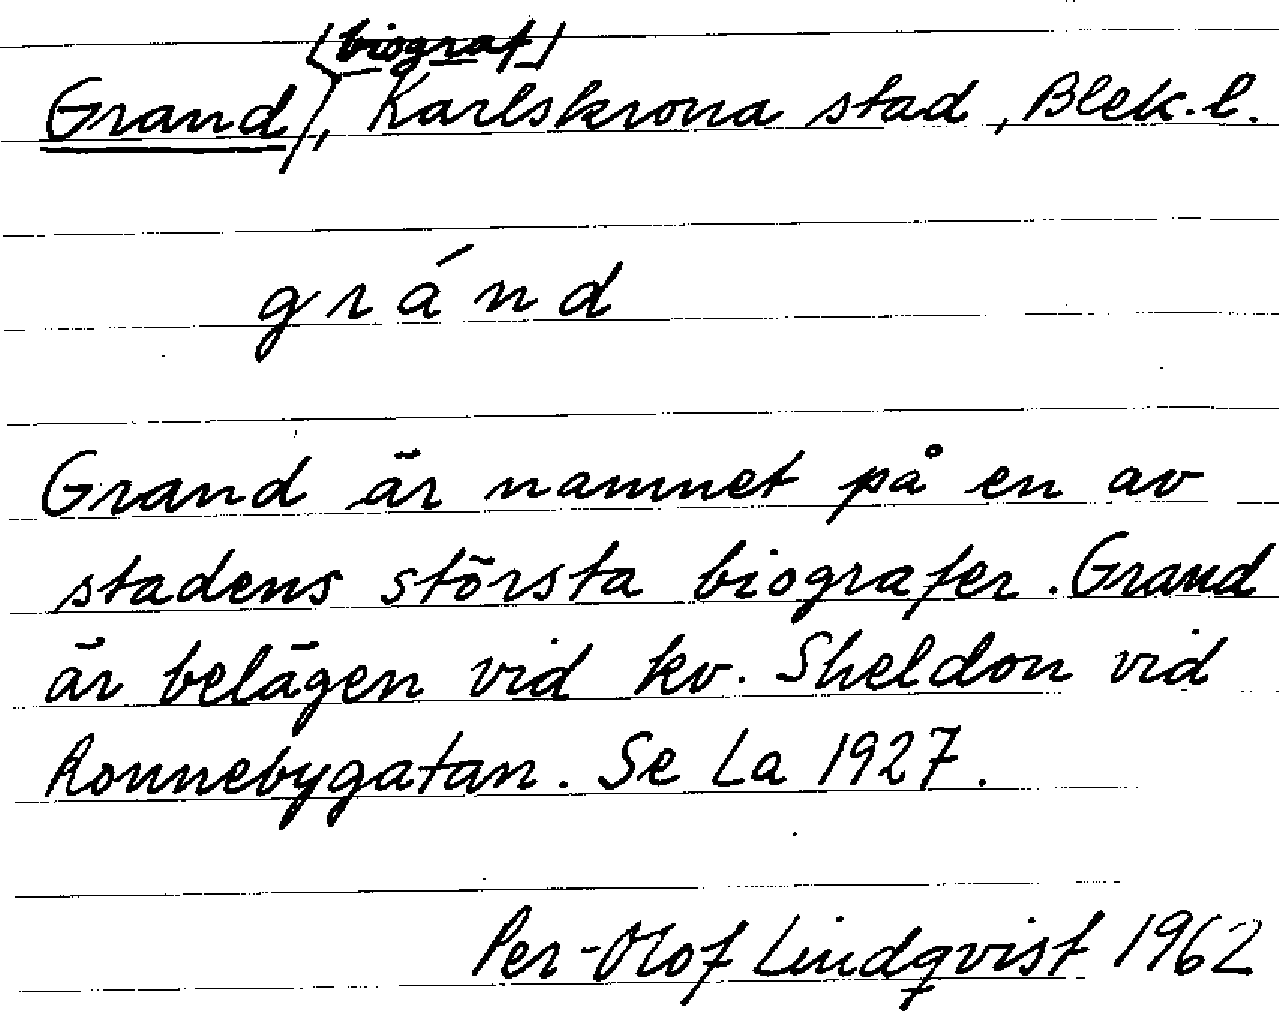 [biograf]
Grand, Karlskrona stad, Blek. l.
gránd
Grand är namnet på en av
stadens största biografer. Grand
är belägen vid kv. Sheldon vid
Ronnebygatan. Se La 1927.
Per-Olof Lindqvist 1962